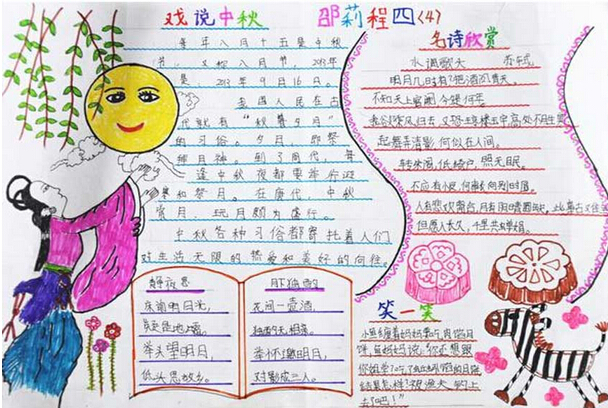 戏说中秋
邵莉程四(4)
每年八月十五是中秋
节,又称八月节,2013年
是2013年9月16日。
我国人民在古
代就有"秋暮夕月"
的习俗。夕月,即祭
拜月神。到了周代,每
逢中秋夜都要举行迎
寒和祭月。在唐代,中秋
赏月、玩月颇为盛行。
中秋各种习俗都寄托着人们
对生活无限的热爱和美好的向往。
静夜思
床前明月光,
疑是地上霜,
举头望明月,
低头思故乡。
月独酌
花间一壶酒,
独酌无相亲。
举杯邀明月,
对影成三人。
名诗欣赏
水调歌头 苏轼
明月几时有?把酒问青天。
不知天上宫阙,今夕是何年
我欲乘风归去,又恐琼楼玉宇,高处不胜寒
起舞弄清影,何似在人间。
转朱阁,低绮户,照无眠。
不应有恨,何事长向别时圆。
人有悲欢离合,月有阴晴圆缺,此事古又住全
但愿人长久,千里共婵娟。
笑一笑
小鱼缠着妈妈要吃月饼馅月
饼,鱼妈妈说:"你还想跟